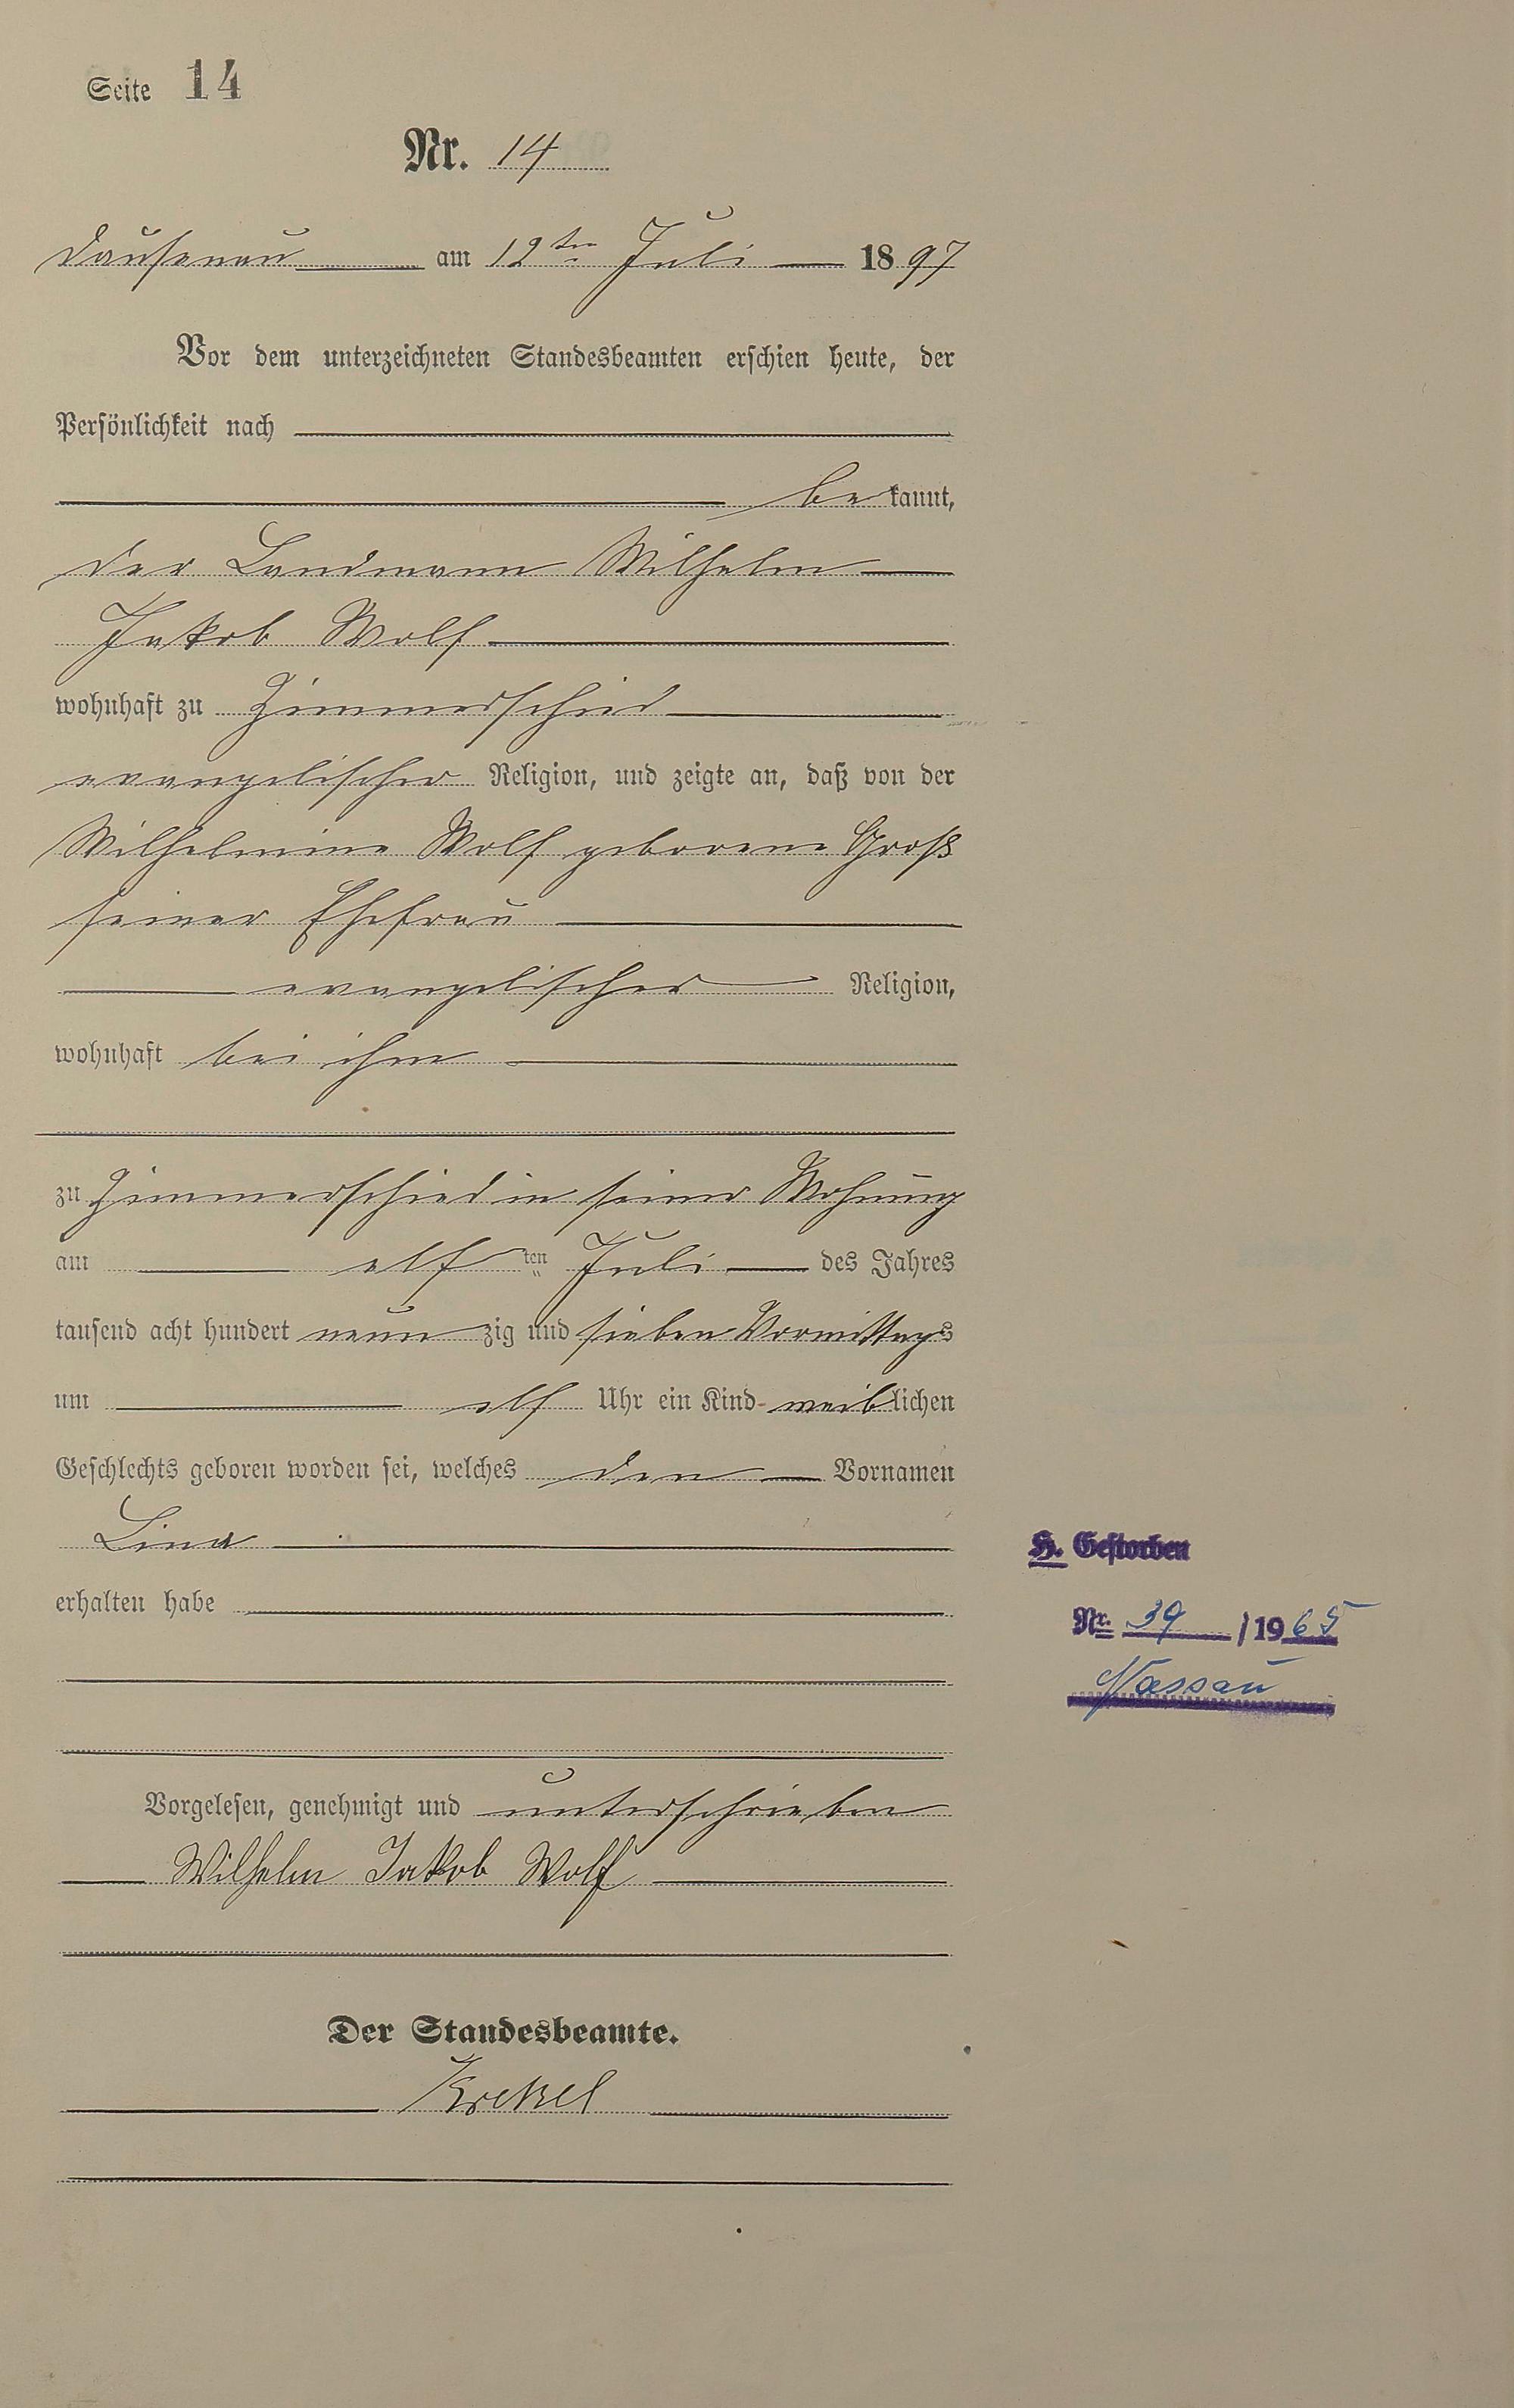 Seite 14
Nr. 14
Dausenau am 12ten Juli 1897
Vor dem unterzeichneten Standesbeamten erschien heute, der
Persönlichkeit nach
bekannt,
der Landmann Wilhelm
Jakob Wolf
wohnhaft zu Zimmerschied
evangelischer Religion, und zeigte an, daß von der
Wilhelmine Wolf geborene Groß
seiner Ehefrau
evangelischer Religion,
wohnhaft bei ihm
zu Zimmerschied in seiner Wohnung
am elf ten Juli des Jahres
tausend acht hundert neunzig und sieben Vormittags
um elf Uhr ein Kind weiblichen
Geschlechts geboren worden sei, welches den Vornamen
Lina
H. Gestorben
erhalten habe
Nr. 39 /1965
Nassau
Vorgelesen, genehmigt und unterschrieben
Wilhelm Jakob Wolf
Der Standesbeamte.
Krekel